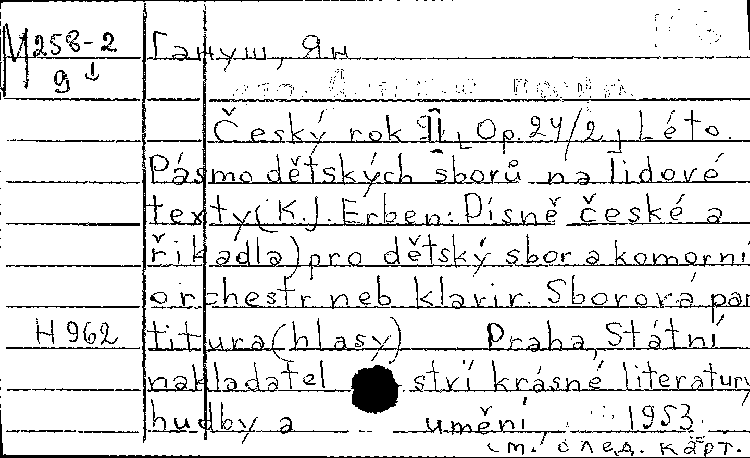 М 258-2 Гануш, Ян
g ↓
Český rok II, Op. 24/2, Léto.
Pásmo dětských sborů na lidové
texty (K. J. Erben: Písně české a
říkadla) pro dětský sbor a komorní
orchestr neb klavir. Sborová par
Н 962 titura (hlasy) Praha, Státní
nakladatel ství krásné literatury
hudby a umění, 1953
см. след. карт.